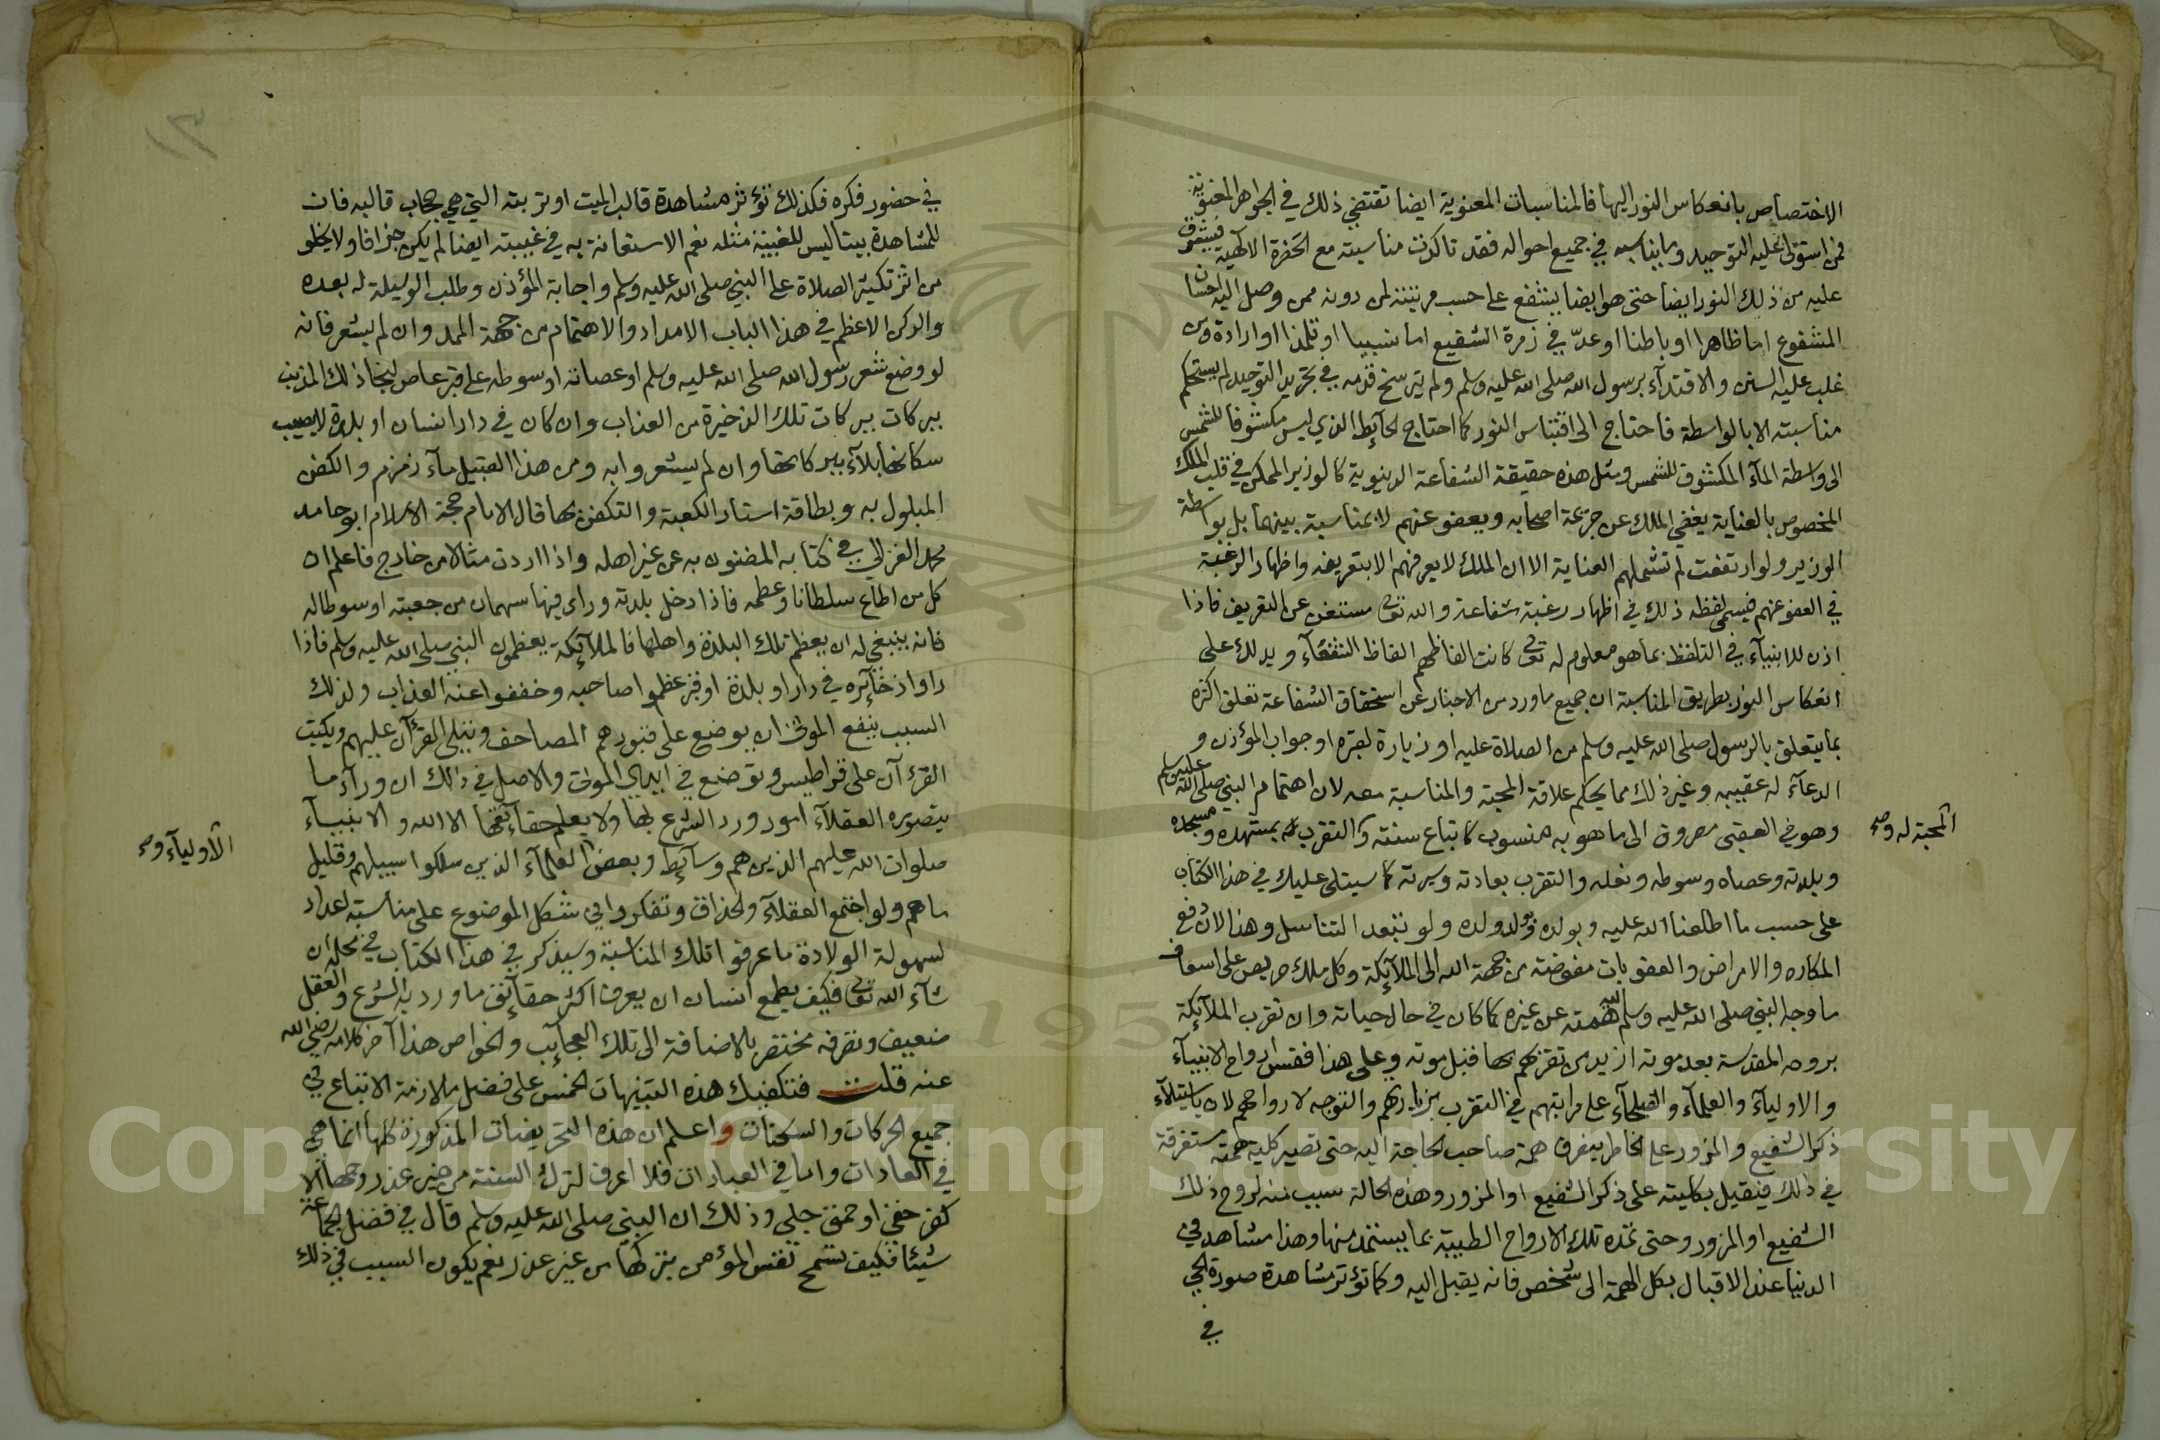 الاختصاص بانعكاس النور اليها فالمناسبات المعنوية ايضا تقتضي ذلك في الجواهر المعنوية
فمن استولى عليه التوحيد وما يناسبه في جميع احواله فقد تاكدت مناسبته مع الحضرة الالهية فيشرق
عليه من ذلك النور ايضا حتى هو ايضا ينتفع على حسب مرتبته لمن دونه ممن وصل اليه احسان
المشفوع اما ظاهرا او باطنا او عدّ في زمرة الشفيع اما نسبيا او تلمذا او ارادة ومن
غلب عليه السنن والاقتدآء برسول الله صلى الله عليه وسلم ولم يترسخ قدمه في تجريد التوحيد لم يستحكم
مناسبته الا بالواسطة فاحتاج الى اقتباس النور كما احتاج الحآئط الذي ليس مكشوفا للشمس
الى واسطة المآء المكشوف للشمس ومثل هذه حقيقة الشفاعة الدنيوية كالوزير الممكن في قلب الملك
المخصوص بالعناية يغضي الملك عن جريمة اصحابه ويعفو عنهم لا لمناسبة بينهما بل بواسطة
الوزير ولو ارتفعت لم تشملهم العناية الا ان الملك لا يعرفهم الا بتعريفه واظهار الرغبة
في العفو عنهم فيسمى لفظه ذلك في اظهار رغبة شفاعة والله تعالى مستغن عن التعريف فاذا
اذن للانبيآء في التلفظ بما هو معلوم له تعالى كانت الفاظهم الفاظ الشفعآء ويدلك على
انعكاس النور بطريق المناسبة ان جميع ما ورد من الاخبار عن استحقاق الشفاعة تعلق اكثره
بما يتعلق بالرسول صلى الله عليه وسلم من الصلاة عليه او زيارة لقبره او جواب المؤذن و
الدعآء له عقيبه وغير ذلك مما يحكم علاقة المحبة والمناسبة معه لان اهتمام النبي صلى الله عليه وسلم
وهو في العقبى مصروف الى ما هو به منسوب كاتباع سنته والتقرب له بمشهده ومسجده
المحبة له وصح
وبلدته وعصاه وسوطه ونعله والتقرب بعادته وسيرته كما سيتلى عليك في هذا الكتاب
على حسب ما اطلعنا الله عليه وبولده وولد ولده ولو تبعد التناسل وهذا لان دفع
المكاره والامراض والعقوبات مفوضة من جهة الله الى الملآئكة وكل ملك حريص على اسعاف
ما وجه النبي صلى الله عليه وسلم اليه همته عن غيره كما كان في حال حياته وان تقرب الملآئكة
بروحه المقدسة بعد موته ازيد من تقربهم بها قبل موته وعلى هذا فقس ارواح الانبيآء
والاوليآء والعلمآء والصلحآء على مراتبهم في التقرب بزيارتهم والتوجه لارواحهم لان باستيلآء
ذكر الشفيع والمزور على الخاطر يتفرق همة صاحب الحاجة اليه حتى تصير كلية همته مستغرقة
في ذلك فيقبل بكليته على ذكر الشفيع او المزور وهذه الحالة سبب تنبه لروح ذلك
الشفيع او المزور وحتى تمده تلك الارواح الطيبة بما يستمد منها وهذا مشاهد في
الدنيا عند الاقبال بكل الهمة الى شخص فانه يقبل اليه وكما تؤثر مشاهدة صورة الحي
في
١٣
في حضور فكره فكذلك تؤثر مشاهدة قالب الميت او تربته التي هي حجاب قالبه فان
للمشاهدة بيتا ليس للغيبة مثله نعم الاستعانة به في غيبته ايضا لم يكن جزافا ولا يخلو
من اثر تكبير الصلاة على النبي صلى الله عليه وسلم واجابة المؤذن وطلب الوسيلة له بعده
والركن الاعظم في هذا الباب الامداد والاهتمام من جهة الممد وان لم يشعر فانه
لو وضع شعر رسول الله صلى الله عليه وسلم او عصاته او سوطه على قبر عاص لنجا ذلك المذنب
ببركات تلك الذخيرة من العذاب وان كان في دار انسان او بلدة لا يصيب
سكانها بلآء ببركاتها وان لم يشعروا به ومن هذا القبيل مآء زمزم والكفن
المبلول به وبطاقة استار الكعبة والتكفن بها قال الامام حجة الاسلام ابو حامد
محمد الغزالي في كتابه المضنون به عن غير اهله واذا اردت مثالا من خارج فاعلم ان
كل من اطاع سلطانا وعظمه فاذا دخل بلدته وراى فيها سهما من جعبته او سوطا له
فانه ينبغي له ان يعظم تلك البلدة واهلها فالملآئكة يعظمون النبي صلى الله عليه وسلم فاذا
راوا ذخآئره في دار او بلدة او قبر عظموا صاحبه وخففوا عنه العذاب ولذلك
السبب ينفع الموتى ان يوضع على قبورهم المصاحف ويتلى القرآن عليهم ويكتب
القرءآن على قراطيس وتوضع في ايدي الموتى والاصل في ذلك ان ورآء ما
يتصوره العقلآء امور ورد الشرع بها ولا يعلم حقآئقها الا الله والانبيآء
صلوات الله عليهم الذين هم وسآئط وبعض العلمآء الذين سلكوا سبيلهم وقليل
الاوليآء وصح
ما هم ولو اجتمع العقلآء والحذاق وتفكروا في شكل الموضوع على مناسبة اعداد
لسهولة الولادة ما عرفوا تلك المناسبة وسيذكر في هذا الكتاب في محله ان
شآء الله تعالى فكيف يطمع انسان ان يعرف اكثر حقآئق ما ورد به الشرع والعقل
ضعيف وتصرفه مختصر بالاضافة الى تلك العجآئب والخواص هذا آخر كلامه رضي الله
عنه قلت فتكفيك هذه التنبيهات الخمس على فضل ملازمة الاتباع في
جميع الحركات والسكنات واعلم ان هذه التحريضات المذكورة كلها انما هي
في العادات واما في العبادات فلا اعرف لترك السنة من غير عذر وجها الا
كفر خفي او حمق جلي وذلك ان النبي صلى الله عليه وسلم قال في فضل الجماعة
شيئا فكيف تسمح نفس المؤمن بتركها من غير عذر نعم يكون السبب في ذلك
Copyright © King Saud University
1957